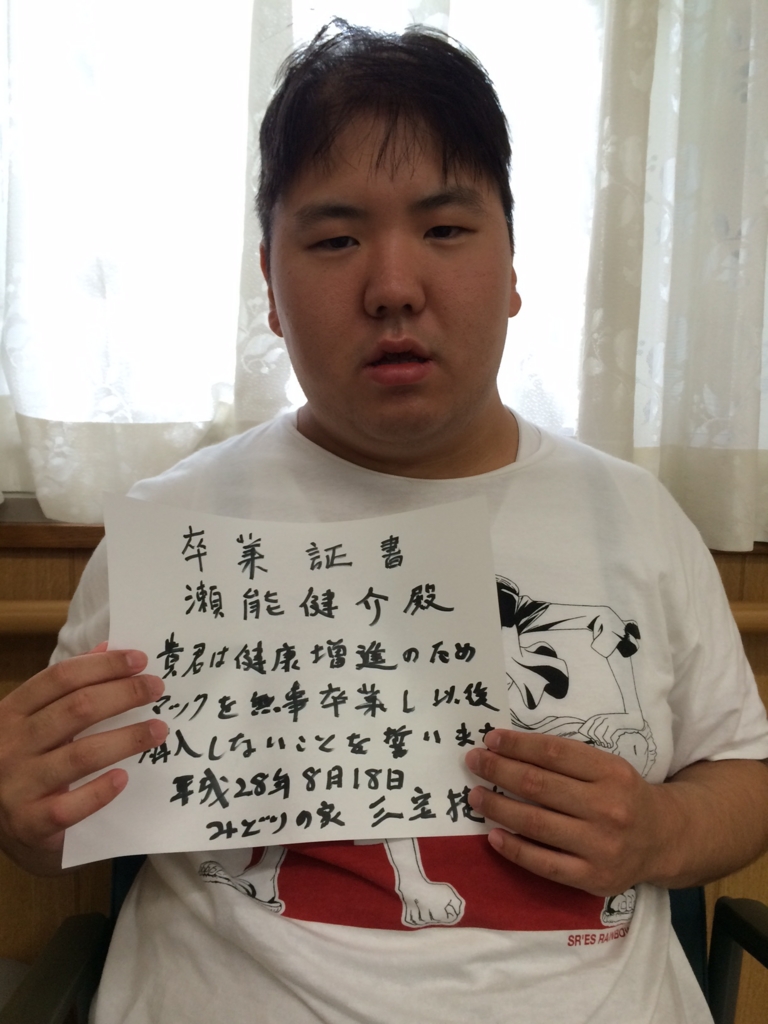 卒業証書
瀬能健介殿
貴君は健康増進のため
マックを無事卒業し以後
購入しないことを誓います
平成28年8月18日
みどりの家 三宅捷
SR'ES RAINBO